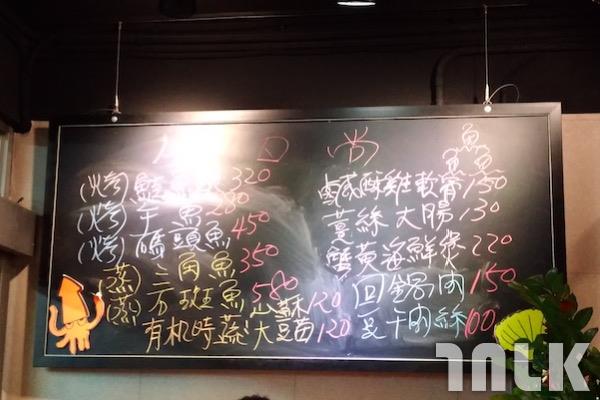 日 尚 魚
(烤) 鱼 320
(烤) 午魚 280
(烤) 馬頭魚 450
(蒸) 三角魚 350
(蒸) 石斑魚 580
有机時蔬 山蘇120
大豆苗120
鹹酥雞軟骨150
薑絲大腸130
蟹黃海鮮煲220
回鍋肉150
豆干肉絲100